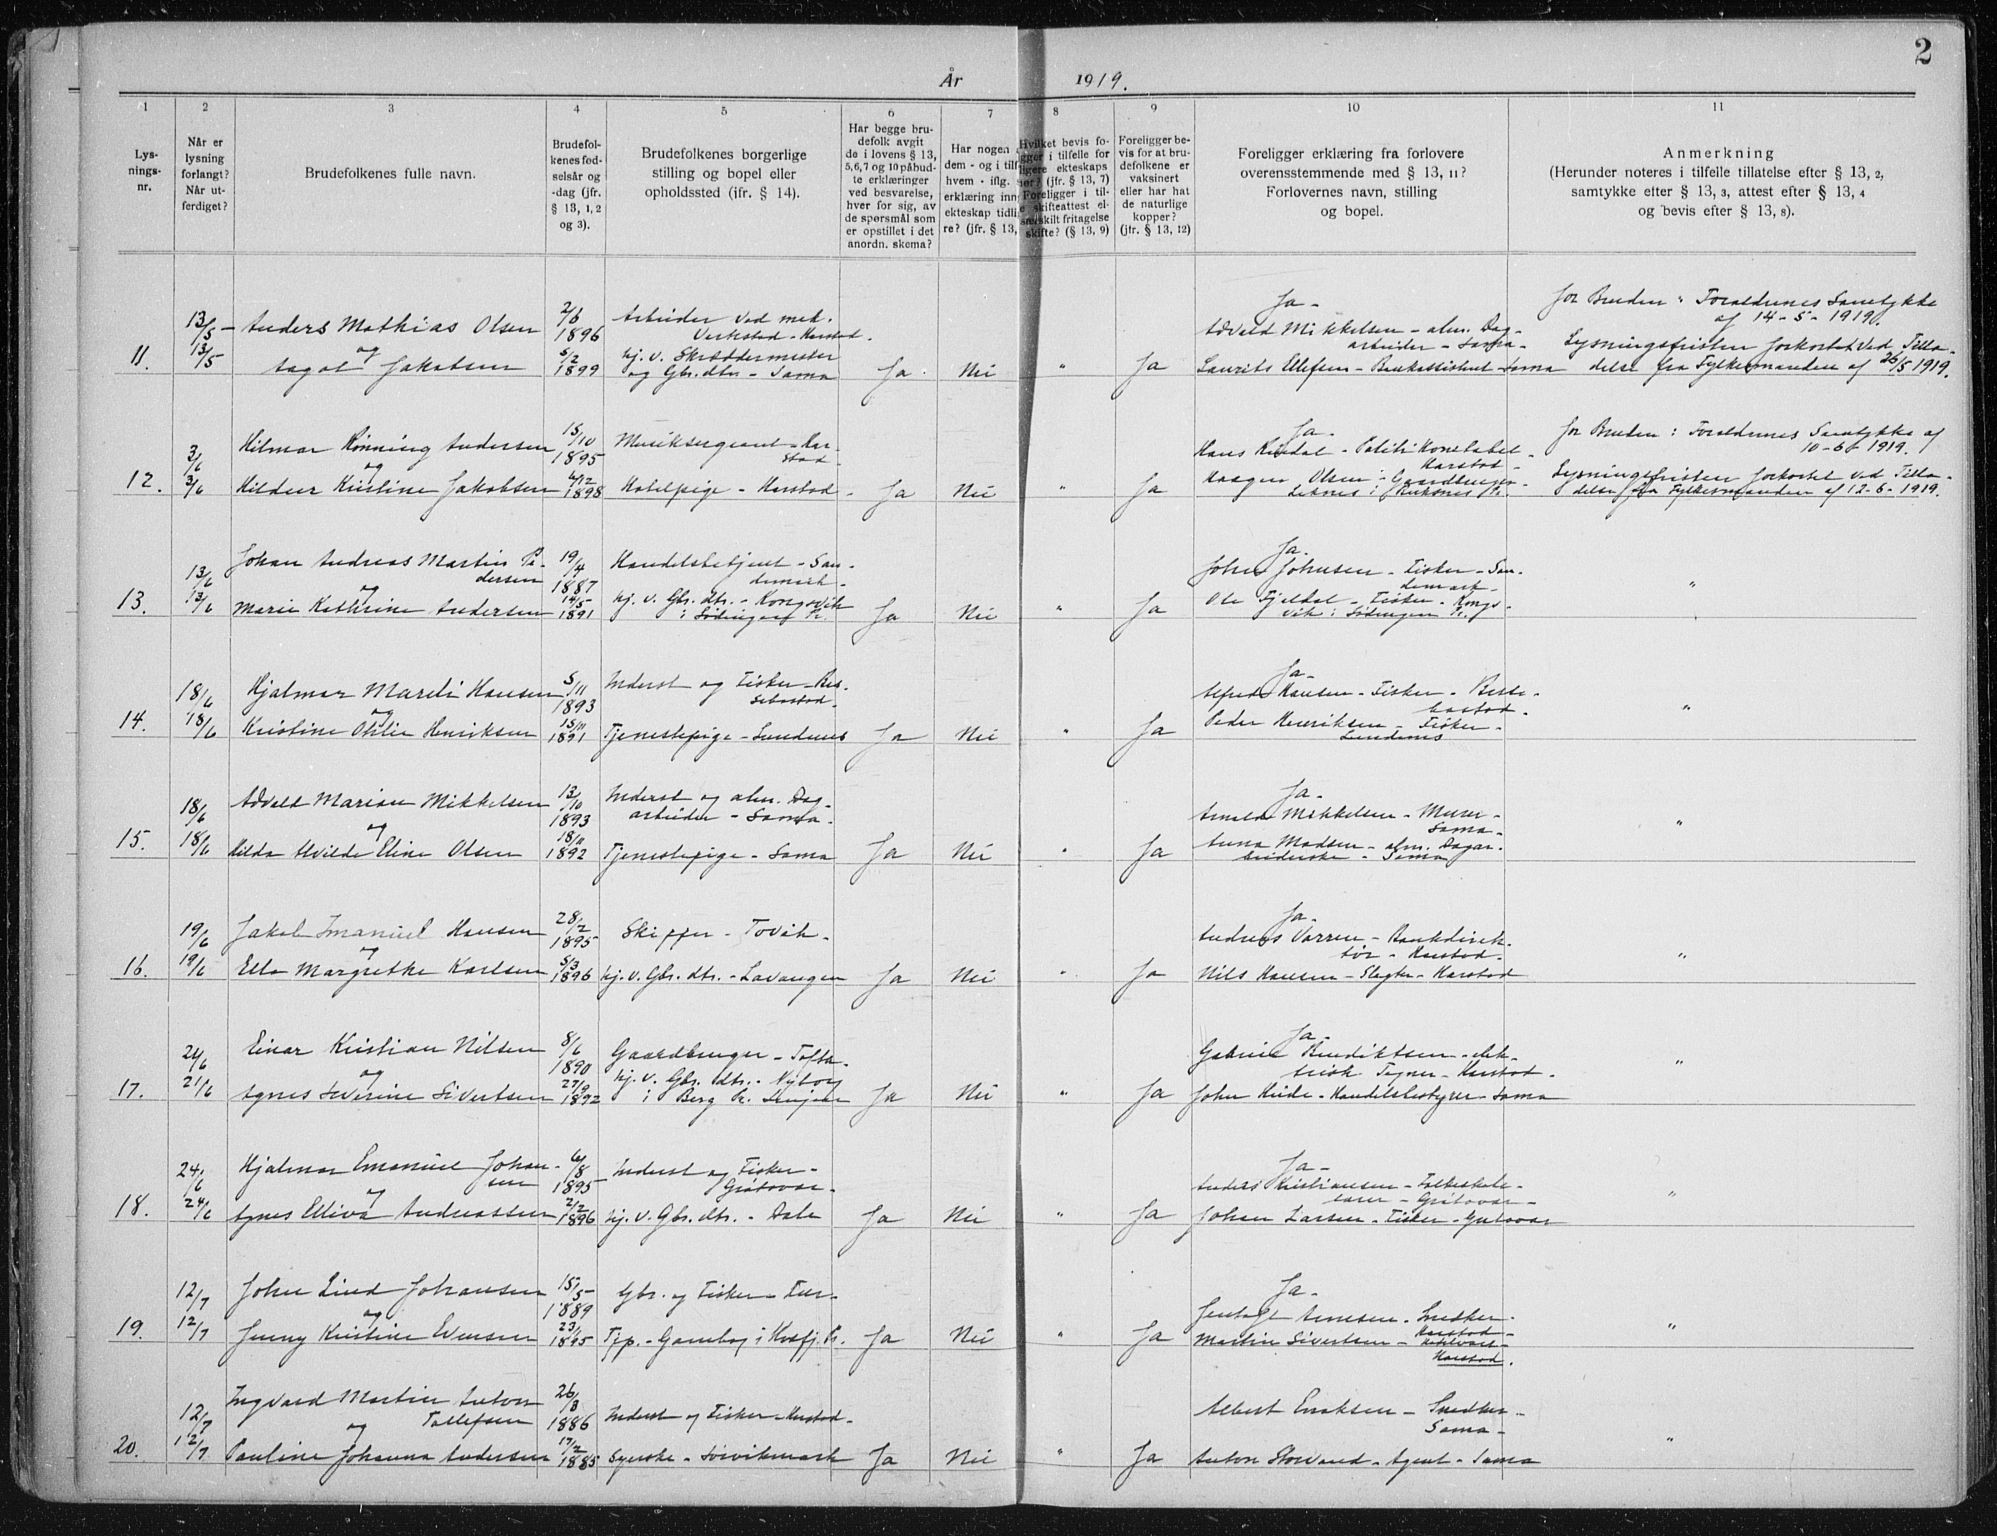 2
År 1919.
1 2 3 4 5 6 7 8 9 10 11
Lysningsnr.
Når er lysning forlangt? Når utferdiget?
Brudefolkenes fulle navn.
Brudefolkenes fødselsår og -dag (jfr. § 13, 1, 2 og 3).
Brudefolkenes borgerlige stilling og bopel eller opholdssted (ifr. § 14).
Har begge brudefolk avgit de i lovens § 13, 5, 6, 7 og 10 påbudte erklæringer ved besvarelse, hver for sig, av de spørsmål som er opstillet i det anordn. skema?
Har nogen
dem - og i tilf
hvem - iflg.
erklæring inn
ekteskap tidli
re? (jfr. § 13,
Hvilket bevis fo-
gger i tilfelle for
ligere ekteskaps
ør? (jfr. § 13, 7)
Foreligger i til-
e skifteattest el-
særskilt fritagelse
skifte? (§ 13, 9)
Foreligger bevis for at brudefolkene er vaksinert eller har hat de naturlige kopper? (jtr. § 13, 12)
Foreligger erklæring fra forlovere
overensstemmende med § 13, 11?
Forlovernes navn, stilling
og bopel.
Anmerkning
(Herunder noteres i tilfelle tillatelse efter § 13, 2,
samtykke efter § 13, 3, attest efter § 13, 4
og bevis efter § 13, 8).
11. 13/5 13/5
Anders Mathias Olsen 2/6 1896 Arbeider ved mek. Verksted - Harstad.
og
Aagot Jakobsen 5/2 1899 hj. v. Skræddermester og Gbr. dtr. - Sama
Ja. Nei " Ja
Ja -
Advald Mikkelsen - alm. Dagarbeider - Sama -
Laurits Ellefsen - Bankassistent - Sama
for Bruden: Forældrenes Samtykke af 14-5-1919.
Lysningsfristen forkortet ved Tilladelse fra Fylkesmanden af 26/5 1919.
12. 3/6 3/6
Hilmar Rønning Andersen 15/10 1895 Musiksergeant - Harstad -
og
Hildur Kristine Jakobsen 6/12 1898 Hotelpige - Harstad -
Ja Nei " Ja
Ja -
Hans Rindal - Politikonstabel Harstad -
Haagen Olsen - Gaardbruger
for Bruden: Forældrenes Samtykke af 10-6-1919.
Lysningsfristen forkortet ved Tilladelse fra Fylkesmanden af 12-6-1919.
13. 13/6 13/6
Johan Andreas Martin Pedersen 19/4 1887 Handelsbetjent - Sandemark -
og
Marie Kathrine Andersen 14/5 1891 hj. v. Gbr. dtr. - Kongsvik i Lødingen P.
Ja Nei " Ja
Ja.
Johan Johnsen - Fisker - Sandemark -
Ole Fjeldal - Fisker - Kongsvik i Lødingen P.
"
14. 18/6 18/6
Hjalmar Hansen 5/11 1893 Inderst og Fisker -
og
Kristine Otilie Henriksen 15/11 1891 Tjenestepige - Lundenes
Ja Nei " Ja
Ja -
Alfred Hansen - Fisker -
Peder Henriksen - Fisker - Lundenes
"
15. 18/6 18/6
Advald Marian Mikkelsen 13/10 1893 Inderst og alm. Dagarbeider - Sama -
og
Hilda Alvilde Eline Olsen 18/11 1892 Tjenestepige - Sama
Ja Nei " Ja
Ja -
Arnold Mikkelsen - Murer - Sama -
Anna Madsen - alm. Dagarbeiderske - Sama
"
16. 19/6 19/6
Jakob Emanuel Hansen 28/2 1895 Skipper - Tovik -
og
Ella Margrethe Karlsen 5/3 1896 hj. v. Gbr. dtr. - Lavangen
Ja Nei " Ja
Ja -
Andreas Varren - Bankdirektør - Harstad -
Nils Hansen - Slagter - Harstad
"
17. 24/6 21/6
Einar Kristian Nilsen 8/6 1890 Gaardbruger - Tofta -
og
Agnes Severine Sivertsen 27/9 1892 hj. v. Gbr. dtr. - Nyborg i Berg P. Senjen
Ja Nei " Ja
Ja -
Gabriel Benediktsen - Arkitekt Tegner - Harstad -
John Heide - Handelsbestyrer - Sama
"
18. 24/6 24/6
Hjalmar Emanuel Johansen 6/8 1895 Inderst og Fisker - Grøtavær -
og
Agnes Andreassen 2/2 1896 hj. v. Gbr. dtr. - Dale
Ja Nei " Ja
Ja -
Anders Kristiansen - Folkeskolelærer - Grøtavær -
Johan Larsen - Fisker - Grøtavær
"
19. 12/7 12/7
John Lind Johansen 15/5 1889 Gbr. og Fisker -
og
Jenny Kristine Evensen 1895 Tjp. - Gamnes i Kvæfj. P.
Ja Nei " Ja
Ja -
Arnesen - Snedker - Harstad -
Martin Sivertsen - Harstad.
"
20. 12/7 12/7
Ingvard Martin Anton Tollefsen 26/3 1886 Inderst og Fisker - Harstad -
og
Pauline Johanna Andersen 17/2 1885 Syerske - Sørvikmark
Ja Nei " Ja
Albert Eriksen - Snedker - Sama -
Anton Storvand - Agent - Sama
"